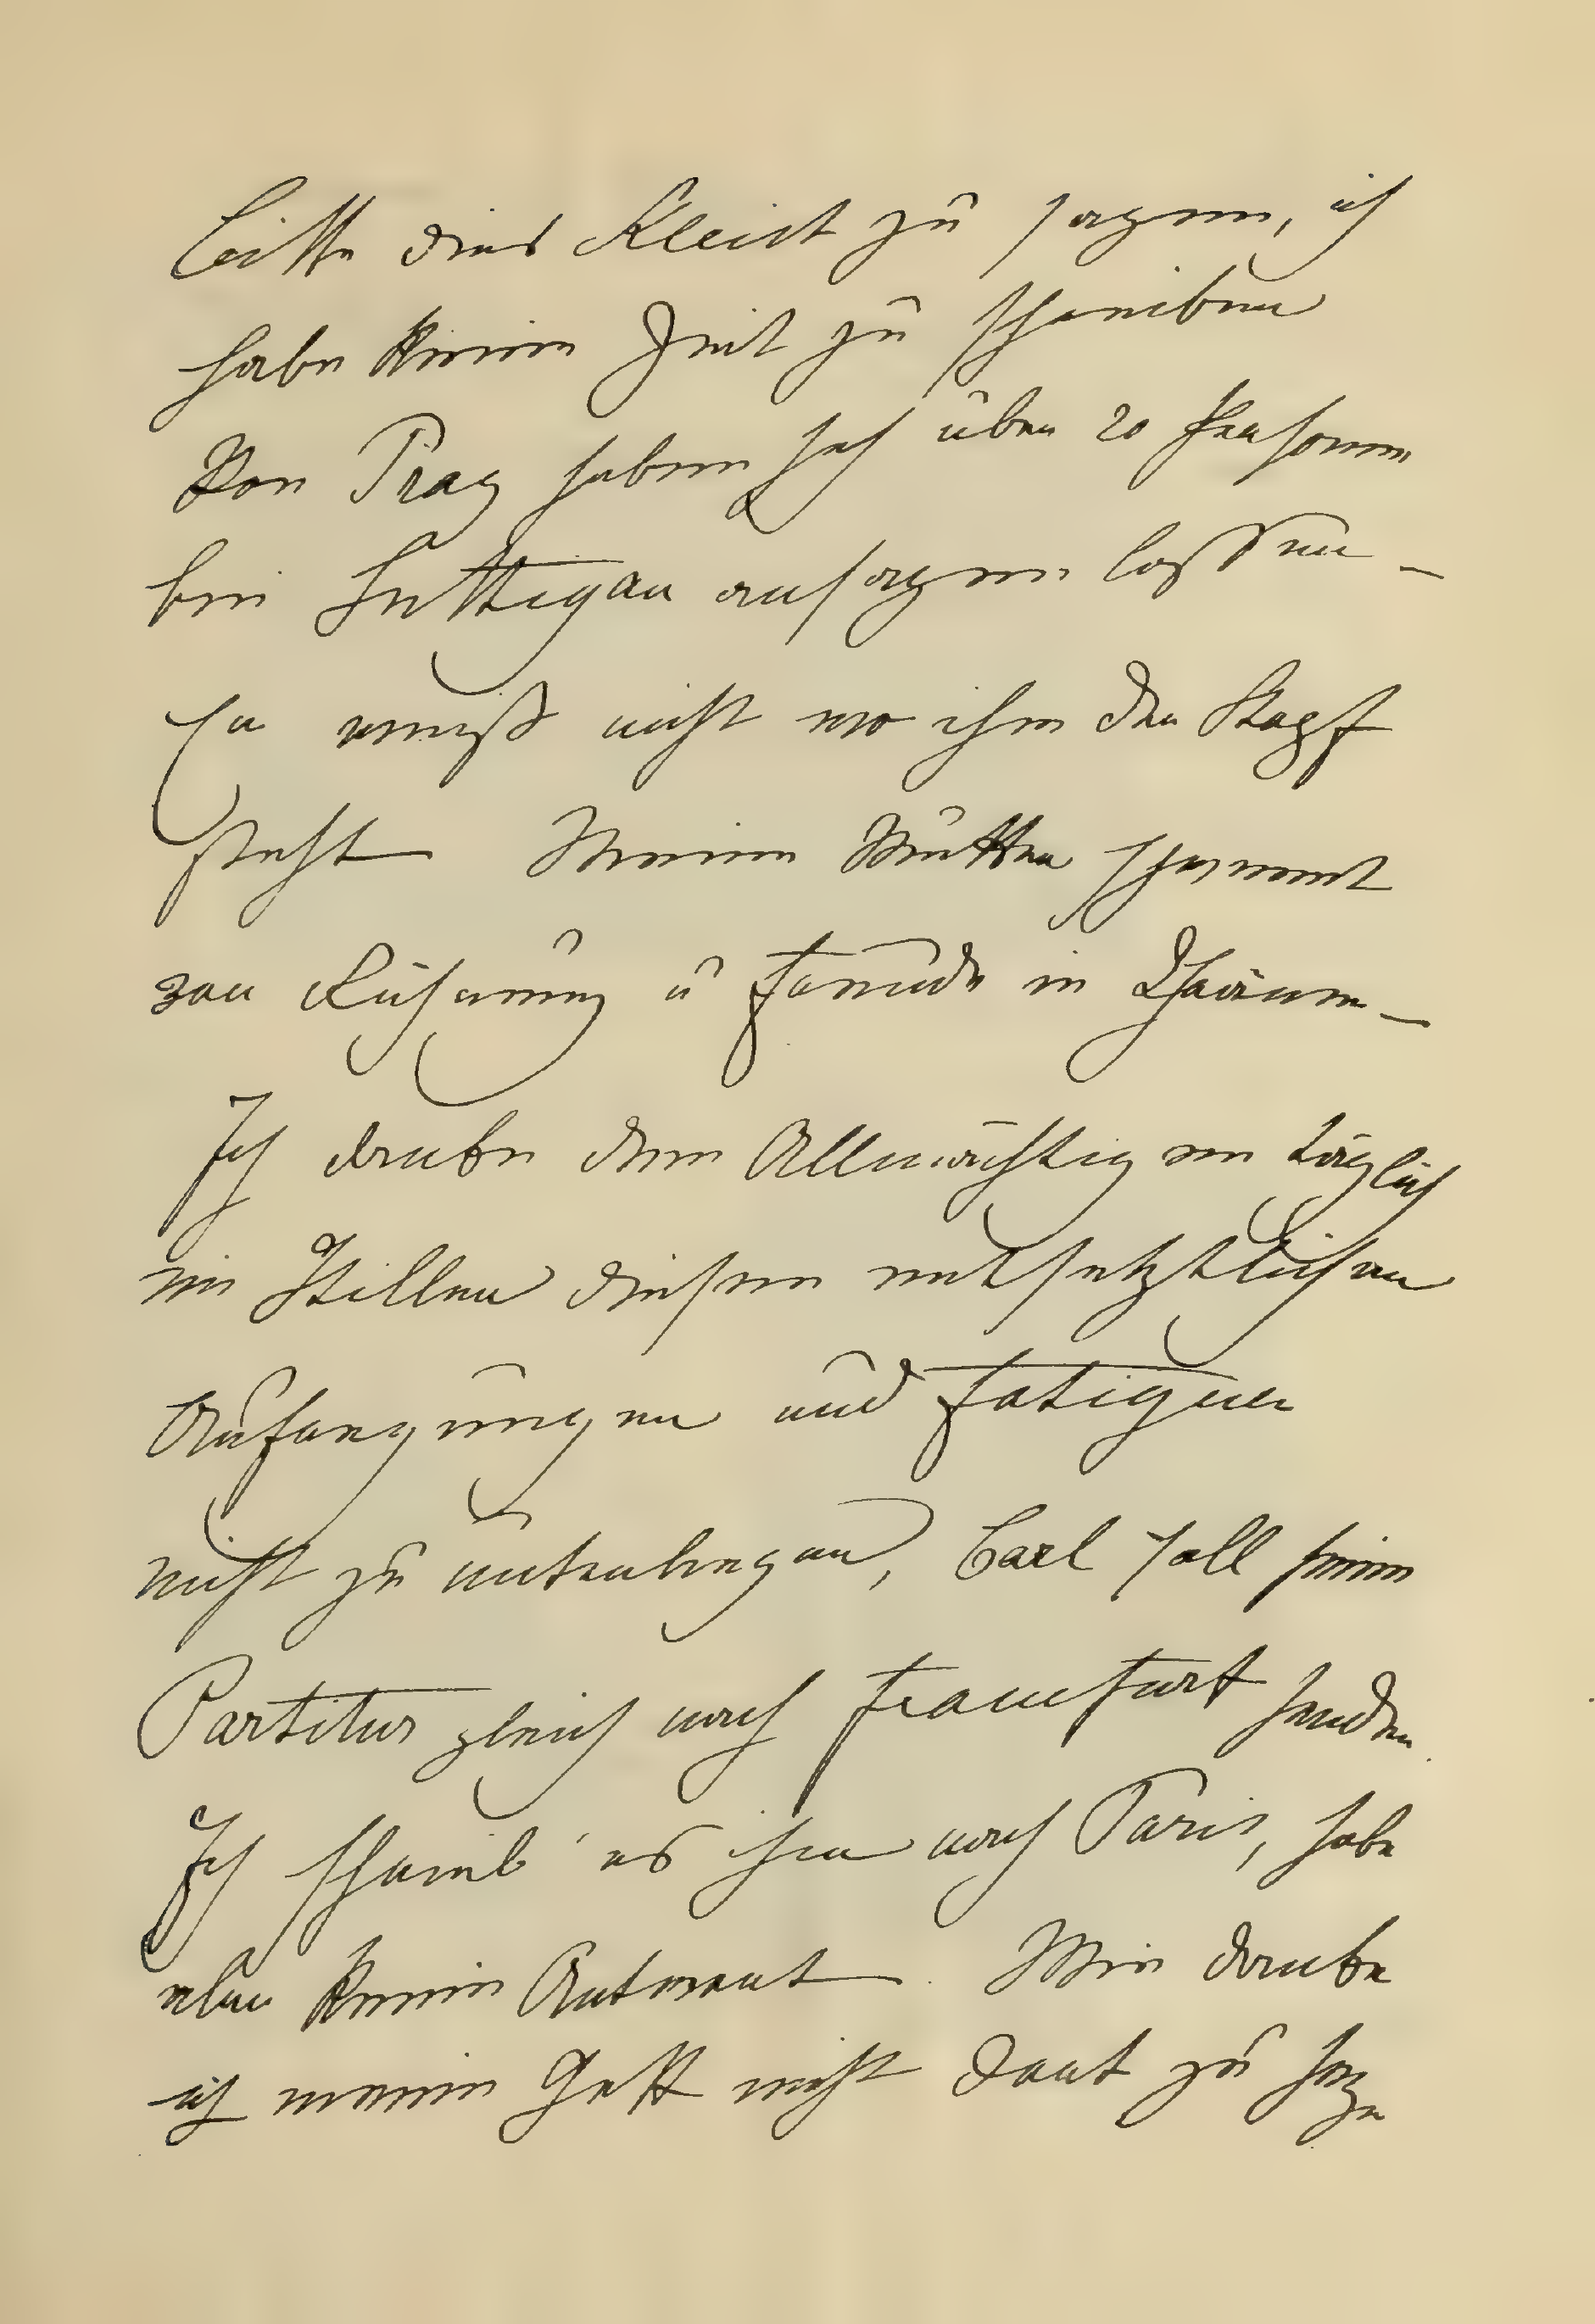 bitte dies Kleist zu sagen, ich
habe keine Zeit zu schreiben
Von Prag haben sich über 20 Personen
bei Luttigau ansagen lassen –
Er weiß nicht wo ihm der Kopf
steht Meine Mutter schwimmt
vor Rührung u Freude in Thränen –
Ich danke dem Allmächtigen täglich
im Stillen diesen entsetzlichen
Aufregungen und Fatiguen
nicht zu unterliegen, Carl soll seine
Partitur gleich nach Frankfurt senden.
Ich schrieb' es ihm nach Paris, habe
aber keine Antwort. Wie danke
ich meinem Gott nicht dort zu